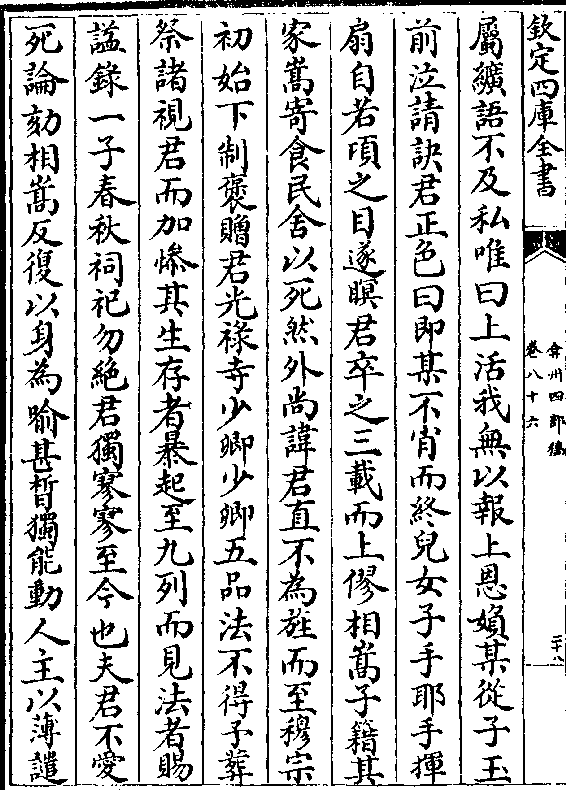 欽定四庫全書
弇州四部稿
卷八十六
二十八
屬纊語不及私唯曰上活我無以報上恩媍某從子玉
前泣請訣君正色曰即某不肖而終兒女子手耶手揮
扇自若項之目遂瞑君卒之三載而上僇相嵩子籍其
家嵩寄食民舍以死然外尚諱君直不為旌而至穆宗
初始下制褒贈君光祿寺少卿少卿五品法不得予葬
祭諸視君而加慘其生存者暴起至九列而見法者賜
諡錄一子春秋祠祀勿絶君獨寥寥至今也夫君不愛
死論劾相嵩反復以身為喻甚晳獨能動人主以薄譴